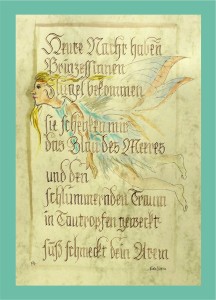 Heute Nacht haben
Prinzessinnen
Flügel bekommen
sie schenken mir
das Blau des Meeres
und den
schlummernden Traum
in Tautropfen geweckt
süß schmeckt dein Atem